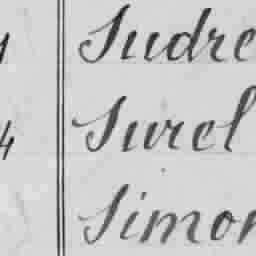 Sudre
4 Surel
Simon